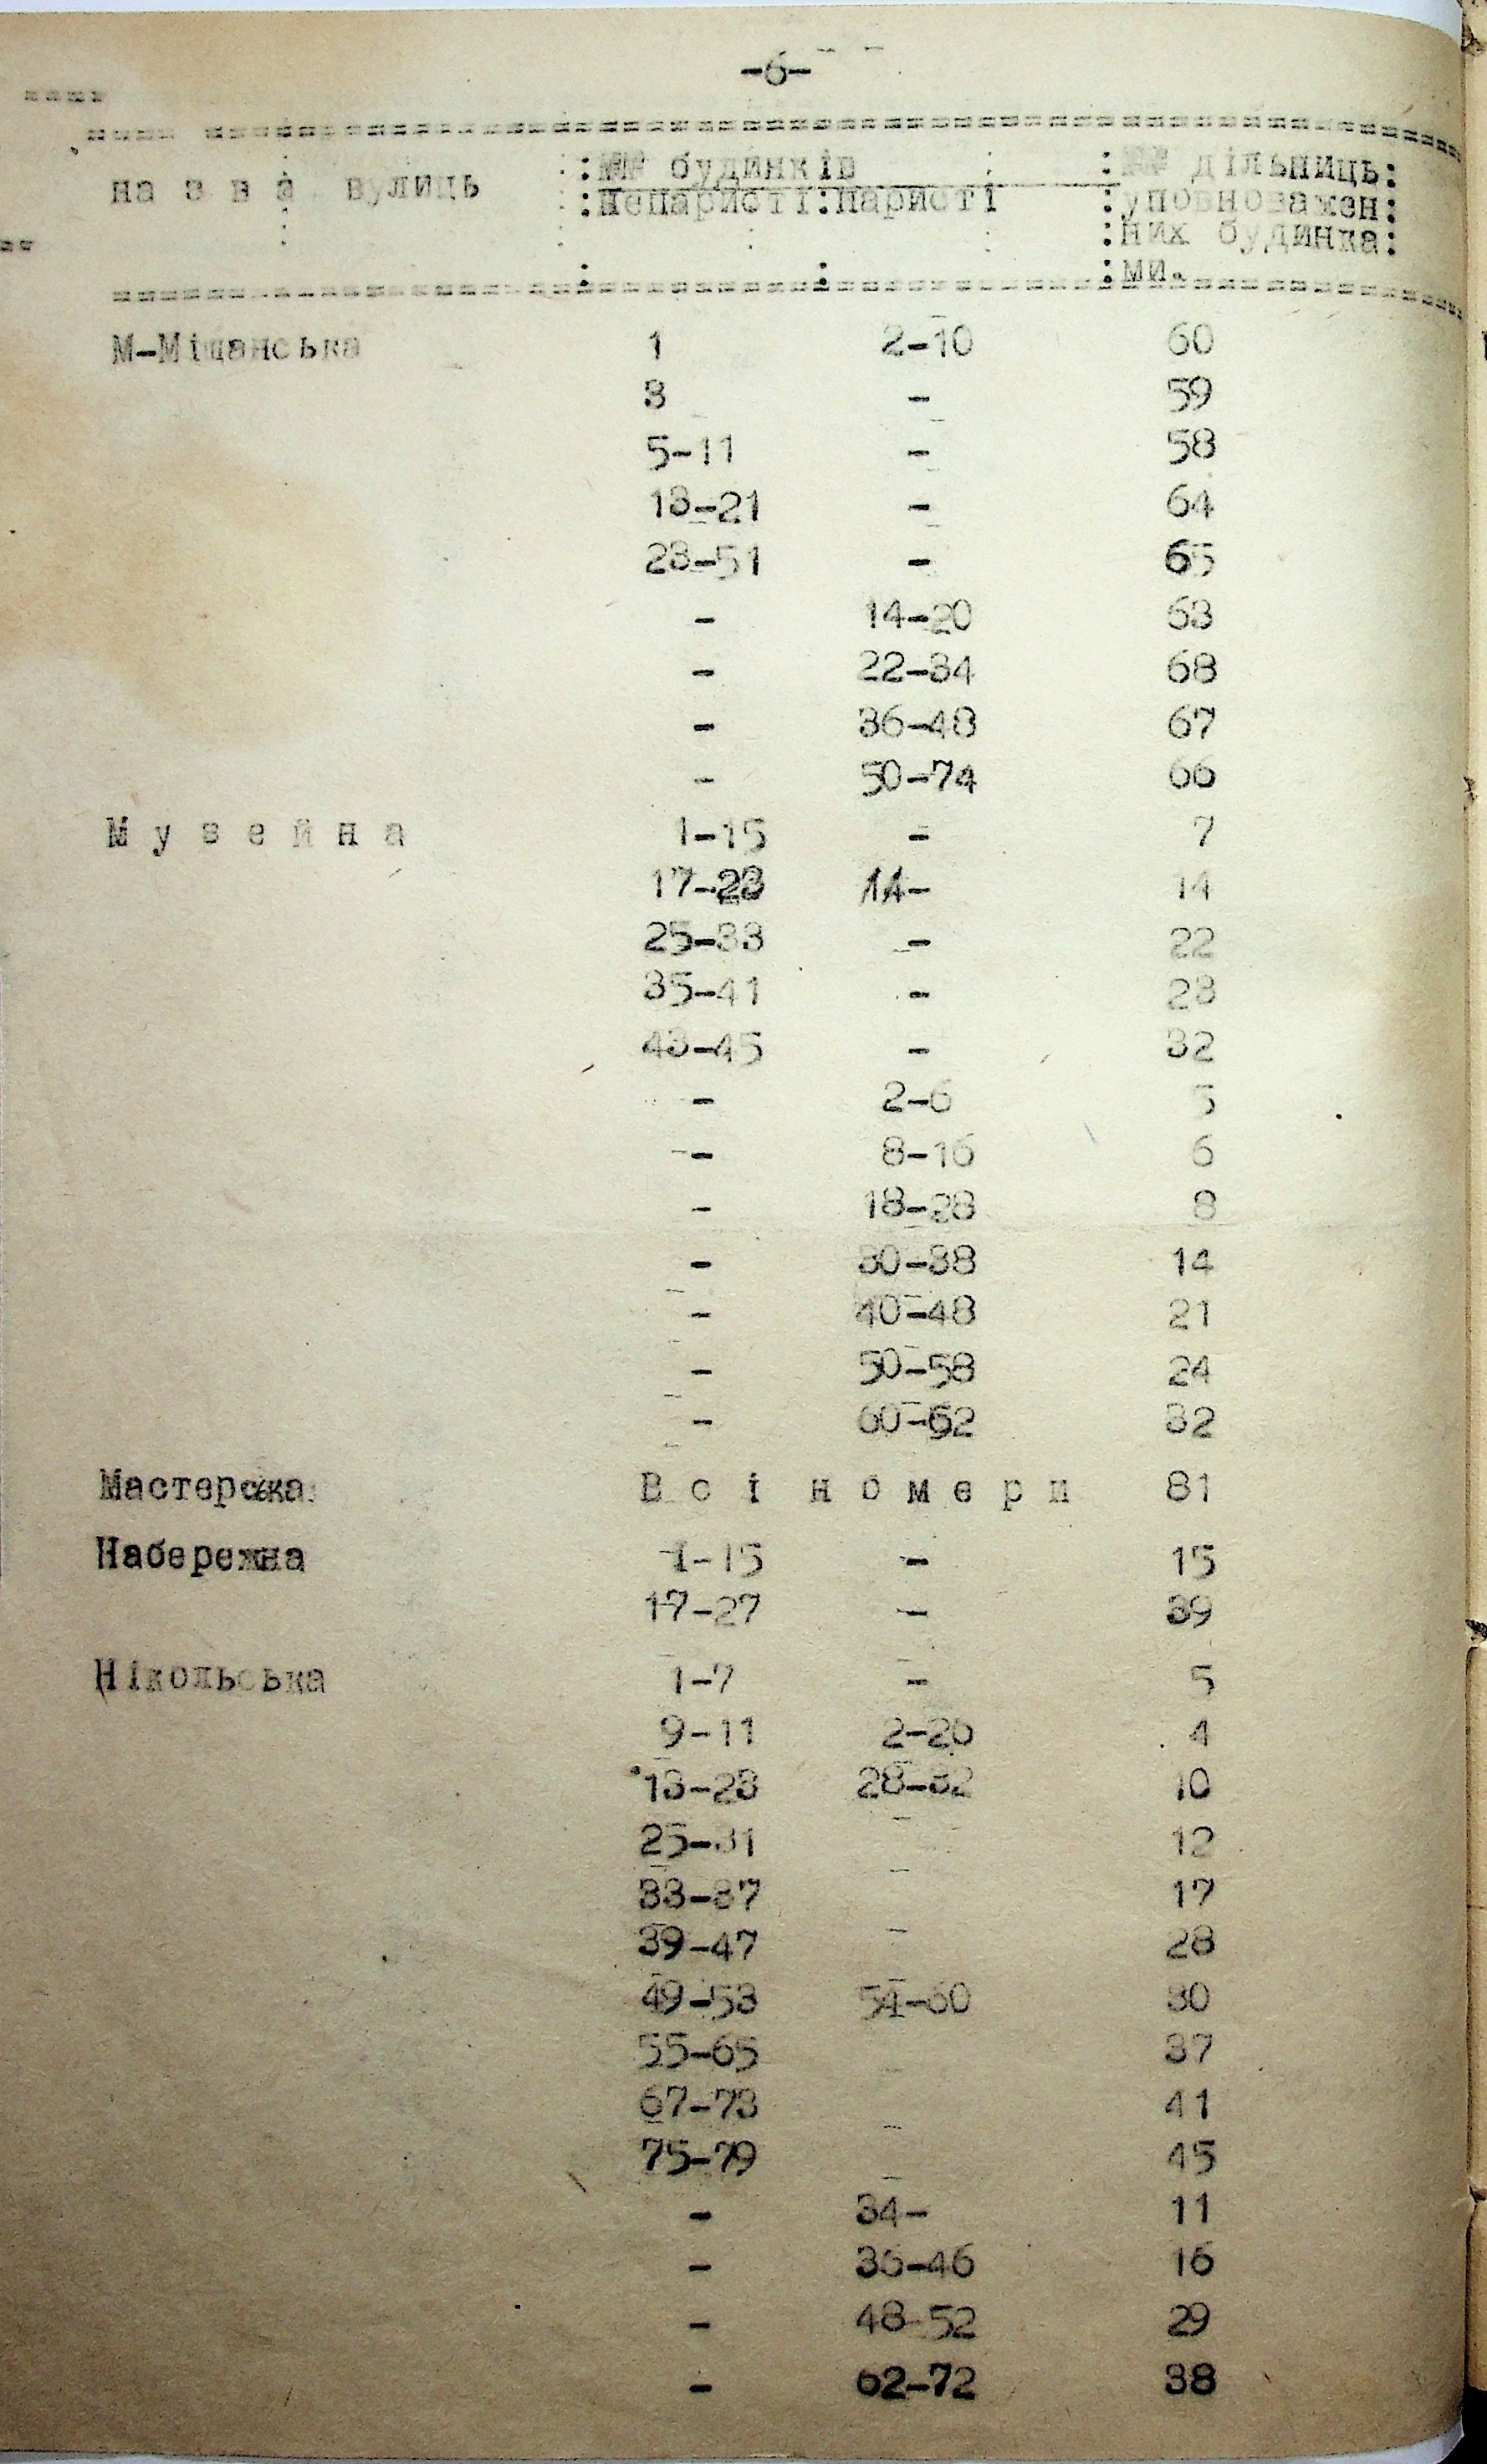 -6-
на з в а вулиць :№№ будинків :№№ дільниць:
:непаристі:паристі :уповноважен:
:них будинка:
: : :ми.
М-Міщанська 1 2-10 60
3 - 59
5-11 - 58
13-21 - 64
23-51 - 65
- 14-20 63
- 22-34 68
- 36-48 67
- 50-74 66
М у з е й н а 1-15 - 7
17-23 14- 14
25-33 - 22
35-41 - 23
43-45 - 32
- 2-6 5
- 8-16 6
- 18-28 8
- 30-38 14
- 40-48 21
- 50-58 24
- 60-62 32
Мастерська В с і н о м е р и 81
Набережна 1-15 - 15
17-27 - 39
Нікольська 1-7 - 5
9-11 2-26 4
13-23 28-32 10
25-31 12
33-37 17
39-47 28
49-53 54-60 30
55-65 37
67-73 41
75-79 45
- 34- 11
- 36-46 16
- 48-52 29
- 62-72 38